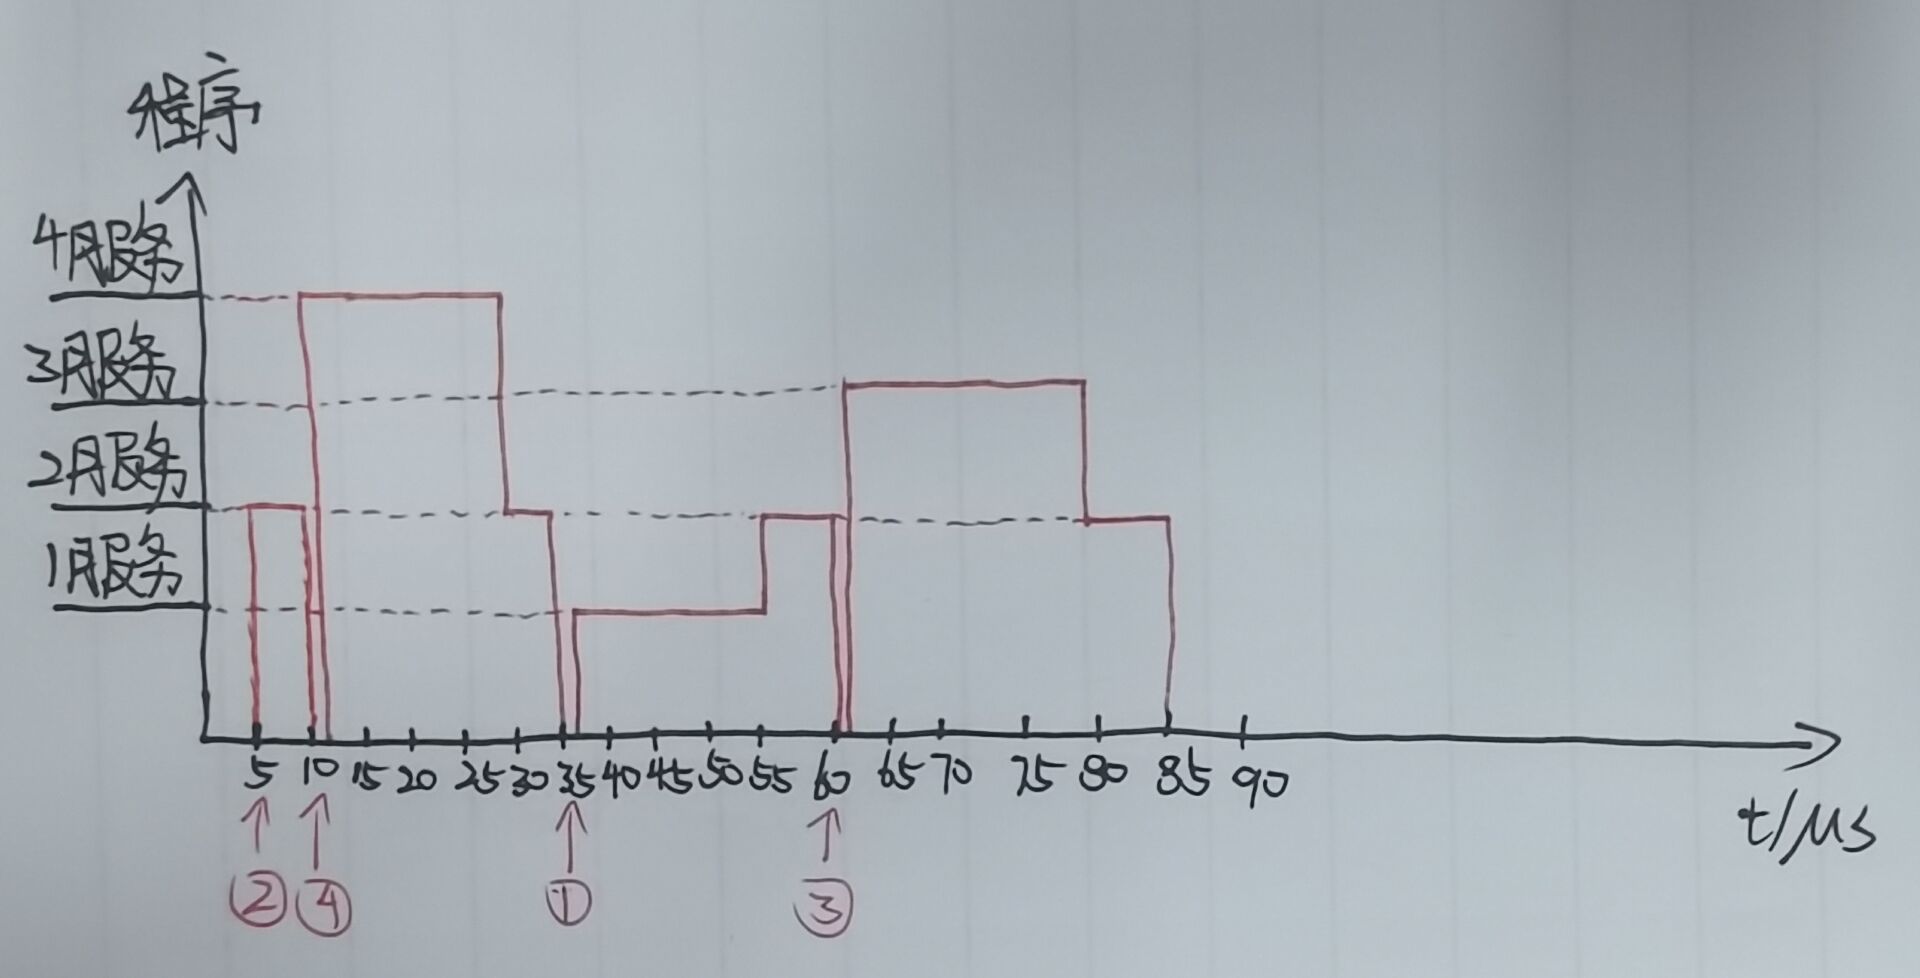 程序
4服务
3服务
2服务
1服务
5 10 15 20 25 30 35 40 45 50 55 60 65 70 75 80 85 90
t/μs
② ④ ① ③